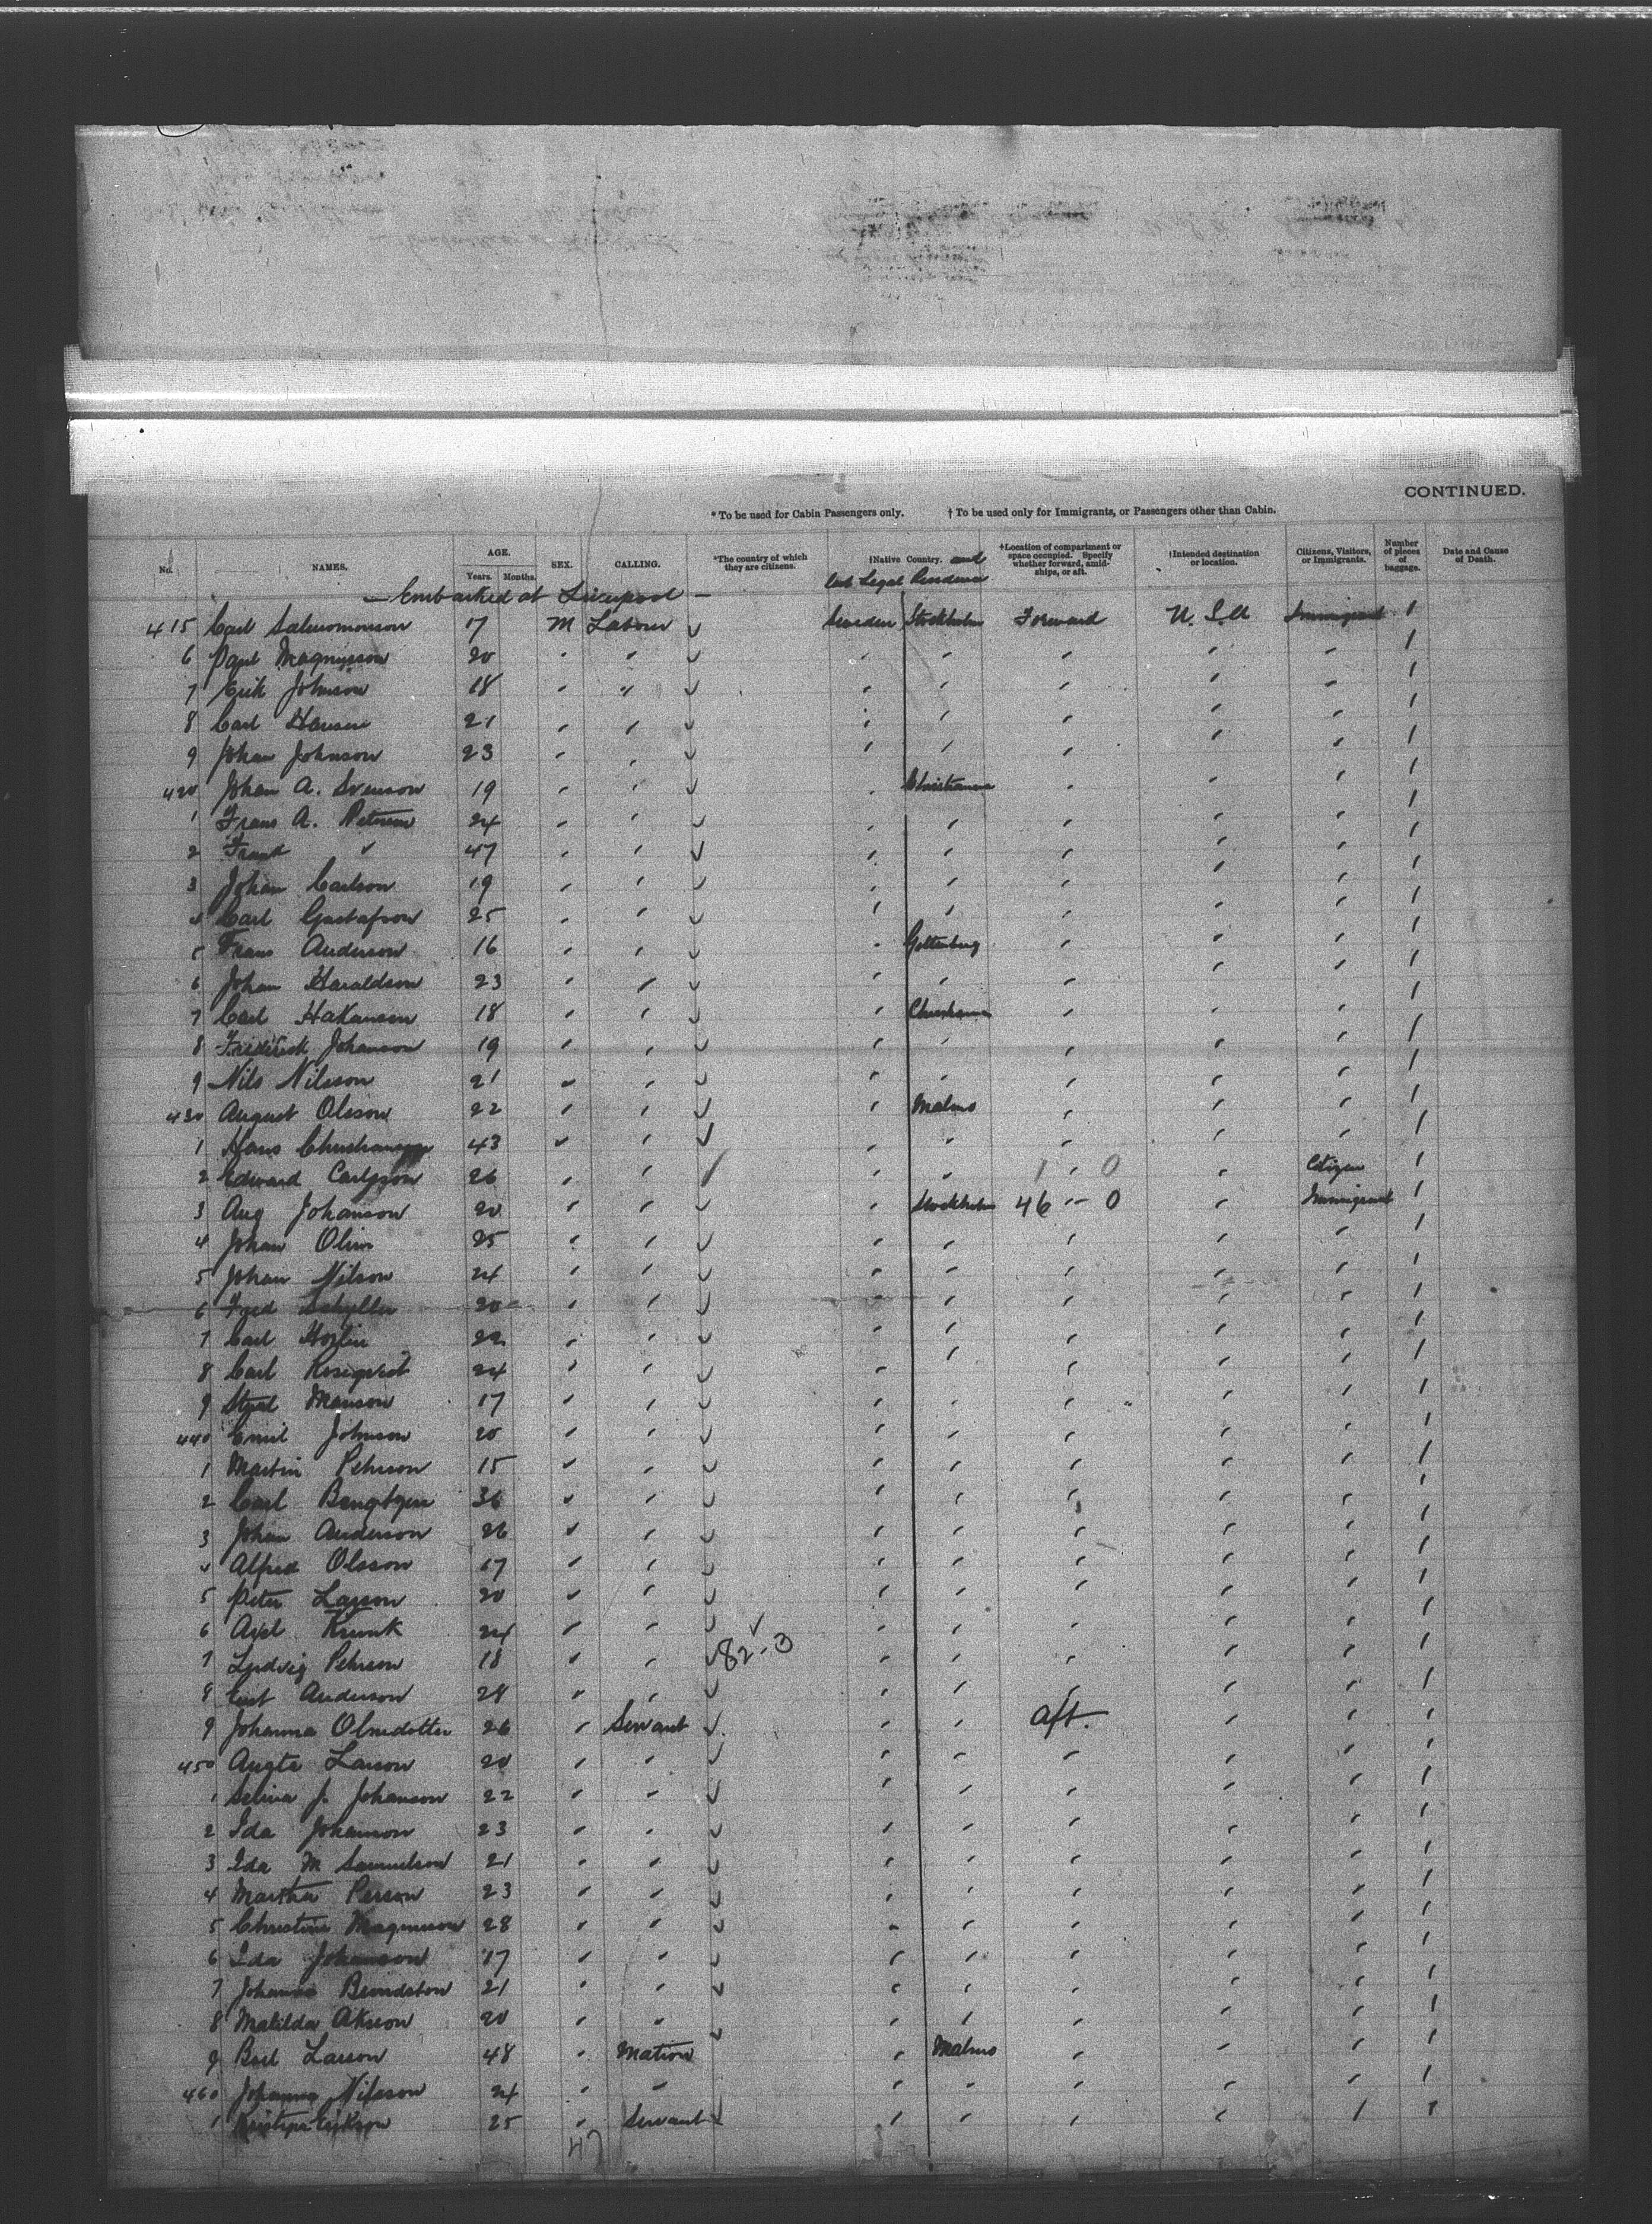 CONTINUED.
* To be used for Cabin Passengers only. † To be used only for Immigrants, or Passengers other than Cabin.
No. NAMES. AGE. Years. Months. SEX. CALLING. *The country of which they are citizens. †Native Country. and last Legal Residence †Location of compartment or space occupied. Specify whether forward, amidships, or aft. †Intended destination or location. Citizens, Visitors, or Immigrants. Number of pieces of baggage. Date and Cause of Death.
— Embarked at Liverpool —
415 Carl Salmomonson 17 M Labour Sweden Stockholm Forward U.S.A Immigrant 1
6 Magnusson 20 " " " " " " " 1
7 Erik Johnson 18 " " " " " " " 1
8 Carl Hansen 21 " " " " " " " 1
9 Johan Johnson 23 " " " " " " " 1
420 Johan A. Svenson 19 " " " Christiania " " " 1
1 Frans A. Peterson 24 " " " " " " " 1
2 Frank " 47 " " " " " " " 1
3 Johan Carlson 19 " " " " " " " 1
4 Carl Gustafson 25 " " " " " " " 1
5 Frans Anderson 16 " " " Gottenberg " " " 1
6 Johan Haraldson 23 " " " " " " " 1
7 Carl Hakanson 18 " " " Christiania " " " 1
8 Fredirick Johanson 19 " " " " " " " 1
9 Nils Nilsson 21 " " " " " " " 1
430 August Olsson 22 " " " Malmo " " " 1
1 Hans 43 " " " " " " " 1
2 Edward Carlsson 26 " " " " 1 " 0 " Citizen 1
3 Aug Johanson 20 " " " Stockholm 46 - 0 " Immigrant 1
4 Johan Olin 25 " " " " " " " 1
5 Johan Nilson 24 " " " " " " " 1
6 Fred 20 " " " " " " " 1
7 Carl 22 " " " " " " " 1
8 Carl Rosiqvist 24 " " " " " " " 1
9 Manson 17 " " " " " " " 1
440 Emil Johnson 20 " " " " " " " 1
1 Martin Pehrson 15 " " " " " " " 1
2 Carl 36 " " " " " " " 1
3 Johan Anderson 26 " " " " " " " 1
4 Alfred Olsson 17 " " " " " " " 1
5 Peter Larson 20 " " " " " " " 1
6 Axel Krunk 24 " " " " " " " 1
7 Ludvig Pehrson 18 " " 82-3 " " " " " 1
8 Anderson 28 " " " " " " " 1
9 Johanna Olnsdotter 26 " Servant " " aft. " " 1
450 Augta Larson 20 " " " " " " " 1
1 Selma J. Johanson 22 " " " " " " " 1
2 Ida Johanson 23 " " " " " " " 1
3 Ida M Samuelson 21 " " " " " " " 1
4 Martha Person 23 " " " " " " " 1
5 Christine Magnuson 28 " " " " " " " 1
6 Ida Johanson 17 " " " " " " " 1
7 Johanna 21 " " " " " " " 1
8 Matilda Akeson 20 " " " " " " " 1
9 Larson 48 " Matron " Malmo " " " 1
460 Johanna Nilsson 24 " " " " " " " 1
1 25 " Servant " " " " " 1
47